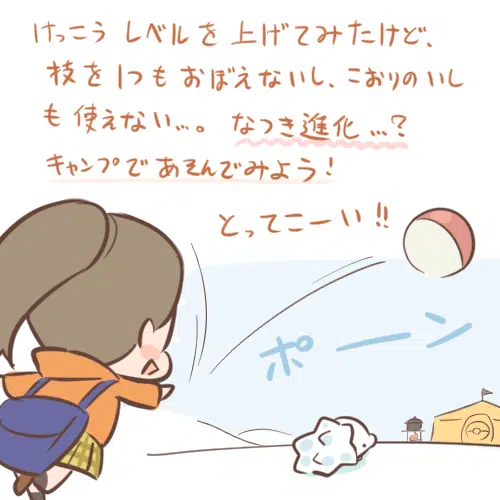 けっこう レベルを 上げてみたけど、
技を1つも おぼえないし、こおりのいし
も 使えない…。 なつき進化 …?
キャンプで あそんでみよう!
とってこーい!!
ポーン